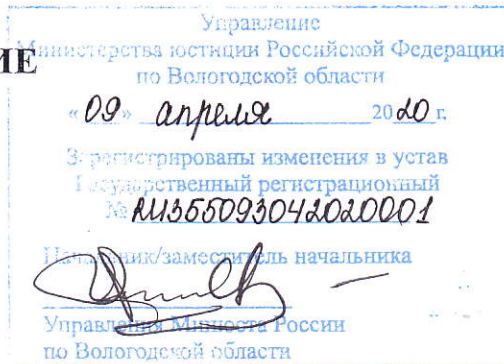 Управление
ИЕ
Министерства юстиции Российской Федерации
по Вологодской области
«09» апреля 2020 г.
Зарегистрированы изменения в устав
Государственный регистрационный
№ RU355093042020001
Начальник/заместитель начальника
Управления Минюста России
по Вологодской области